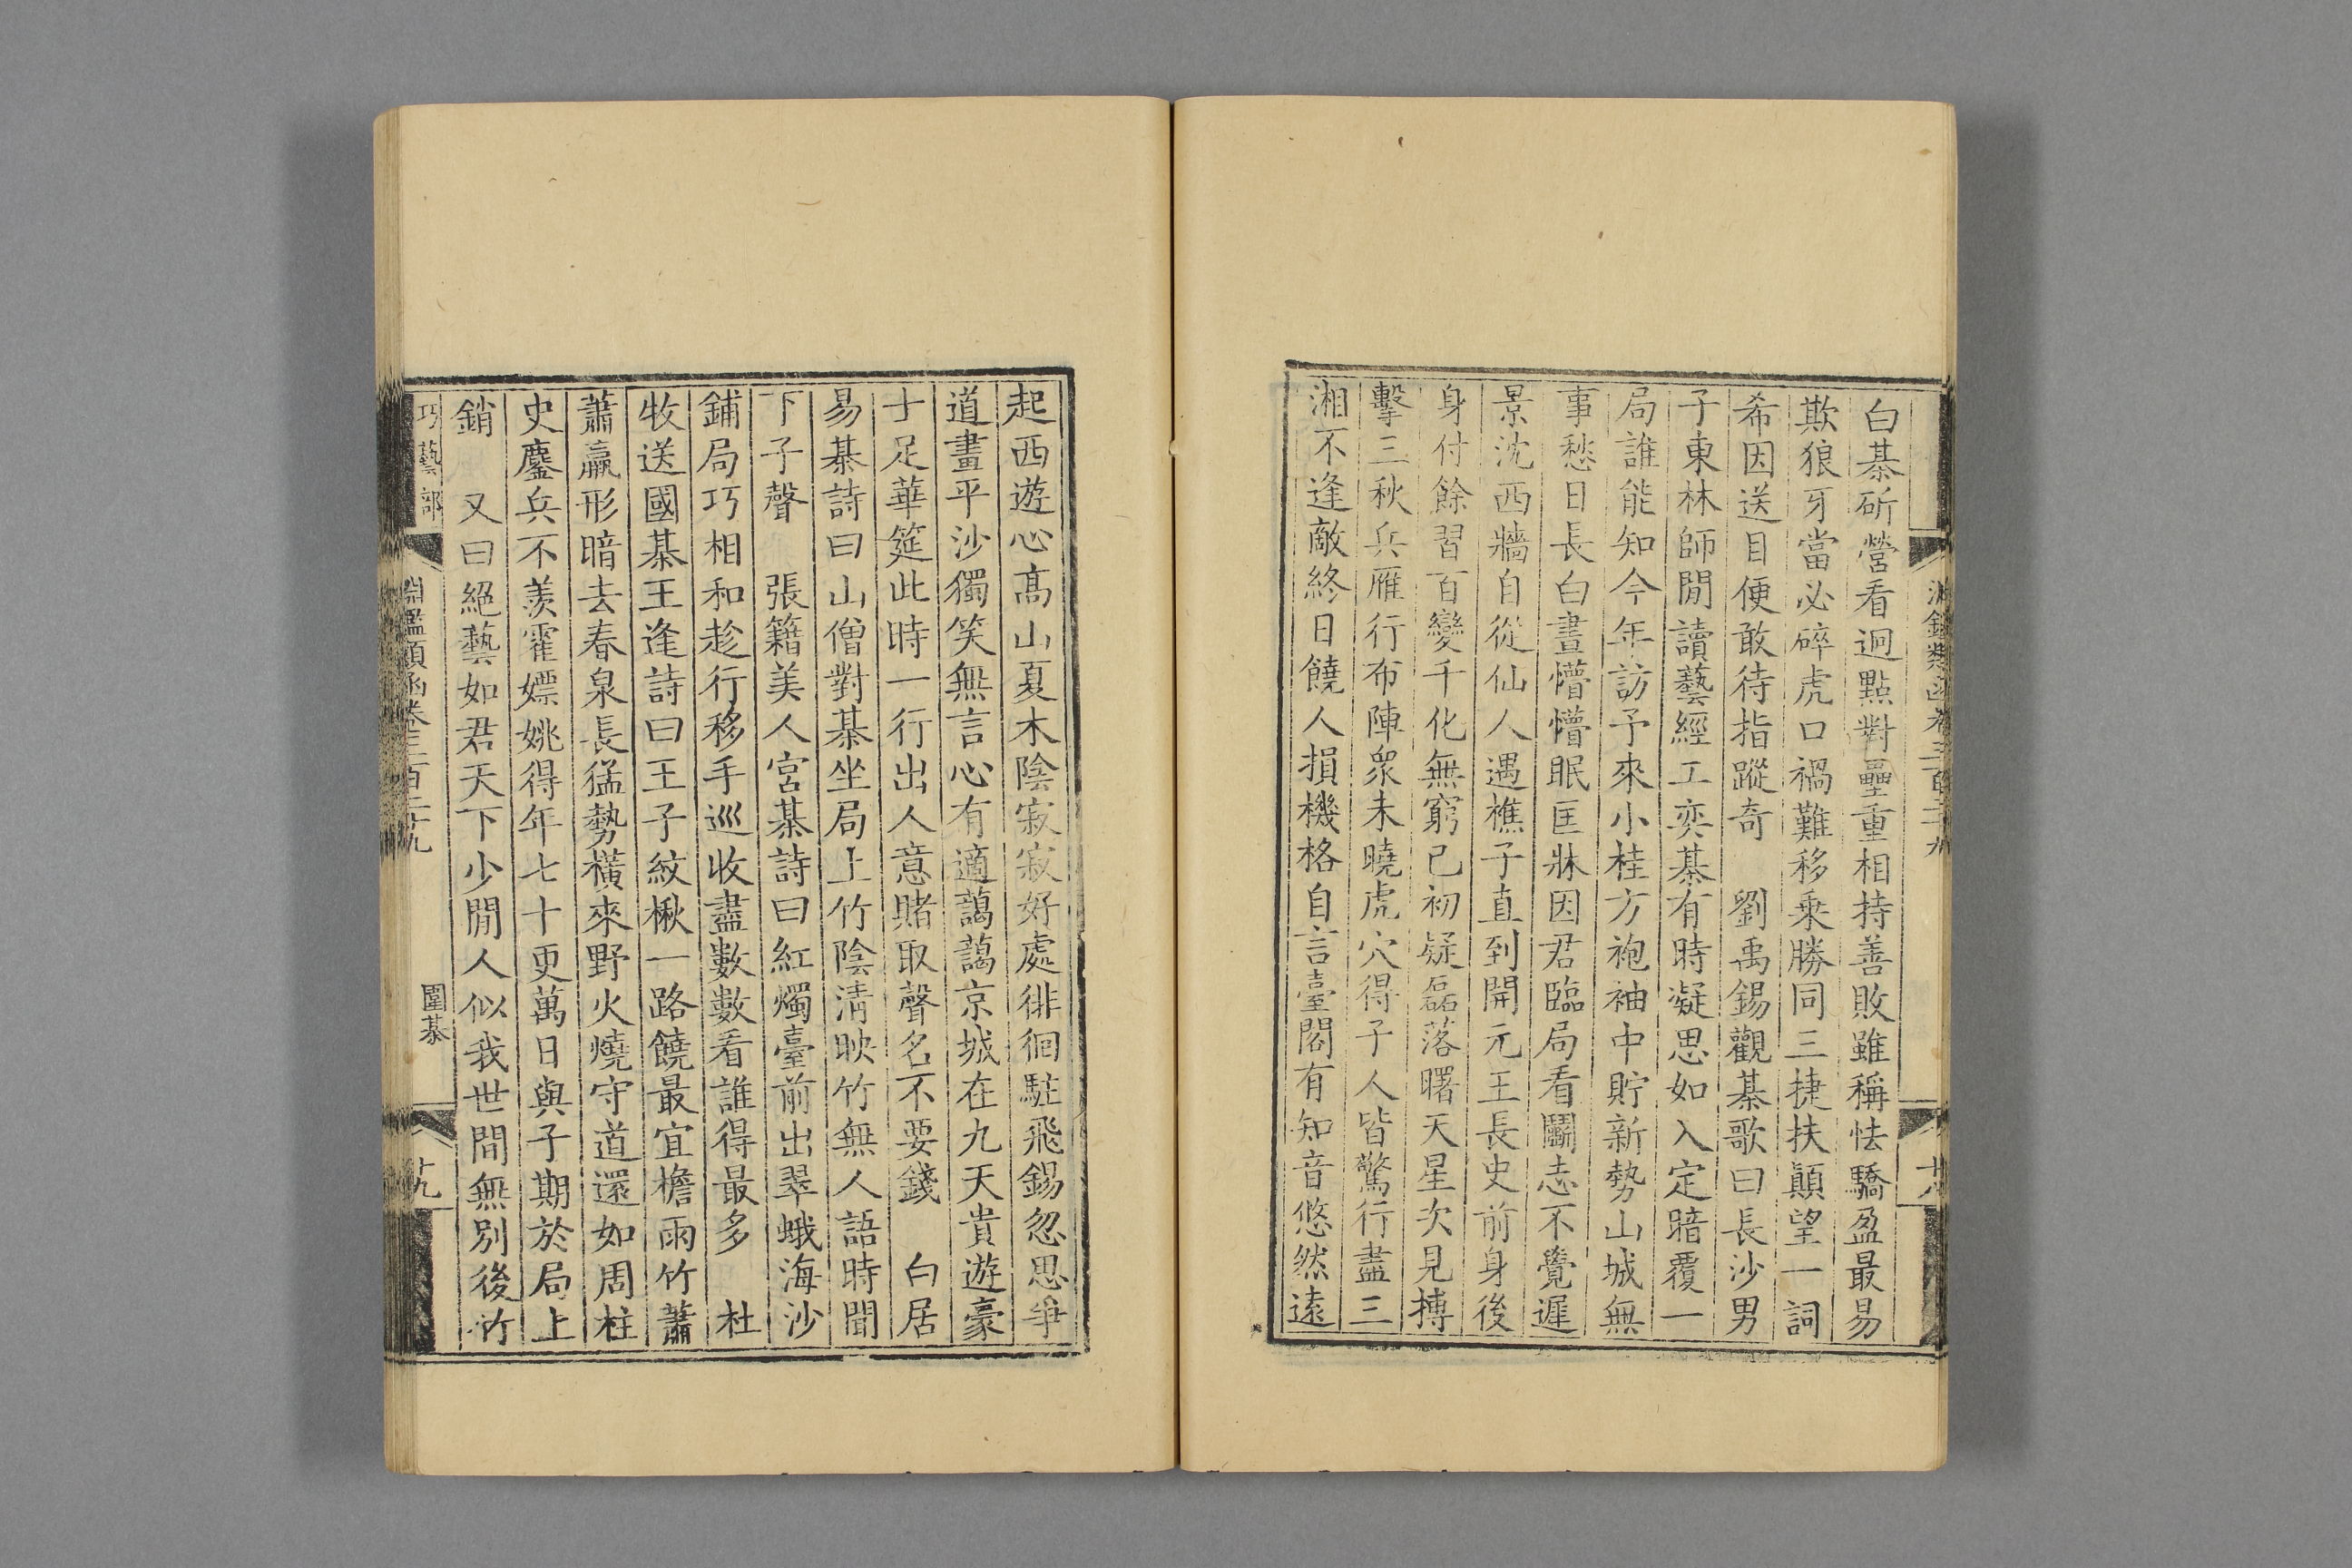 淵鑑類函卷三百二十九
十八
白棊斫營看迥點對壘重相持善敗雖稱怯驕盈最易
欺狼牙當必碎虎口禍難移乗勝同三捷扶顛望一詞
希因送目便敢待指蹤奇　劉禹錫觀棊歌曰長沙男
子東林師閒讀藝經工奕棊有時凝思如入定暗覆一
局誰能知今年訪予來小桂方袍袖中貯新勢山城無
事愁日長白晝懵懵眠匡牀因君臨局看鬭志不覺遲
景沈西牆自從仙人遇樵子直到開元王長史前身後
身付餘習百變千化無窮已初疑磊落曙天星次見搏
擊三秋兵雁行布陣衆未曉虎穴得子人皆驚行盡三
湘不逢敵終日饒人損機格自言臺閣有知音悠然遠
起西遊心髙山夏木陰寂寂好處徘徊駐飛錫忽思爭
道畫平沙獨笑無言心有適藹藹京城在九天貴遊豪
士足華筵此時一行出人意賭取聲名不要錢　白居
易棊詩曰山僧對棊坐局上竹陰淸映竹無人語時聞
下子聲　張籍美人宮棊詩曰紅燭臺前出翠蛾海沙
鋪局巧相和趁行移手巡收盡數數看誰得最多　杜
牧送國棊王逢詩曰王子紋楸一路饒最宜檐雨竹蕭
蕭羸形暗去春泉長猛勢橫來野火燒守道還如周柱
史鏖兵不羨霍嫖姚得年七十更萬日與子期於局上
銷　又曰絕藝如君天下少閒人似我世間無別後竹
巧藝部
淵鑑類函卷三百二十九
圍棊
十九